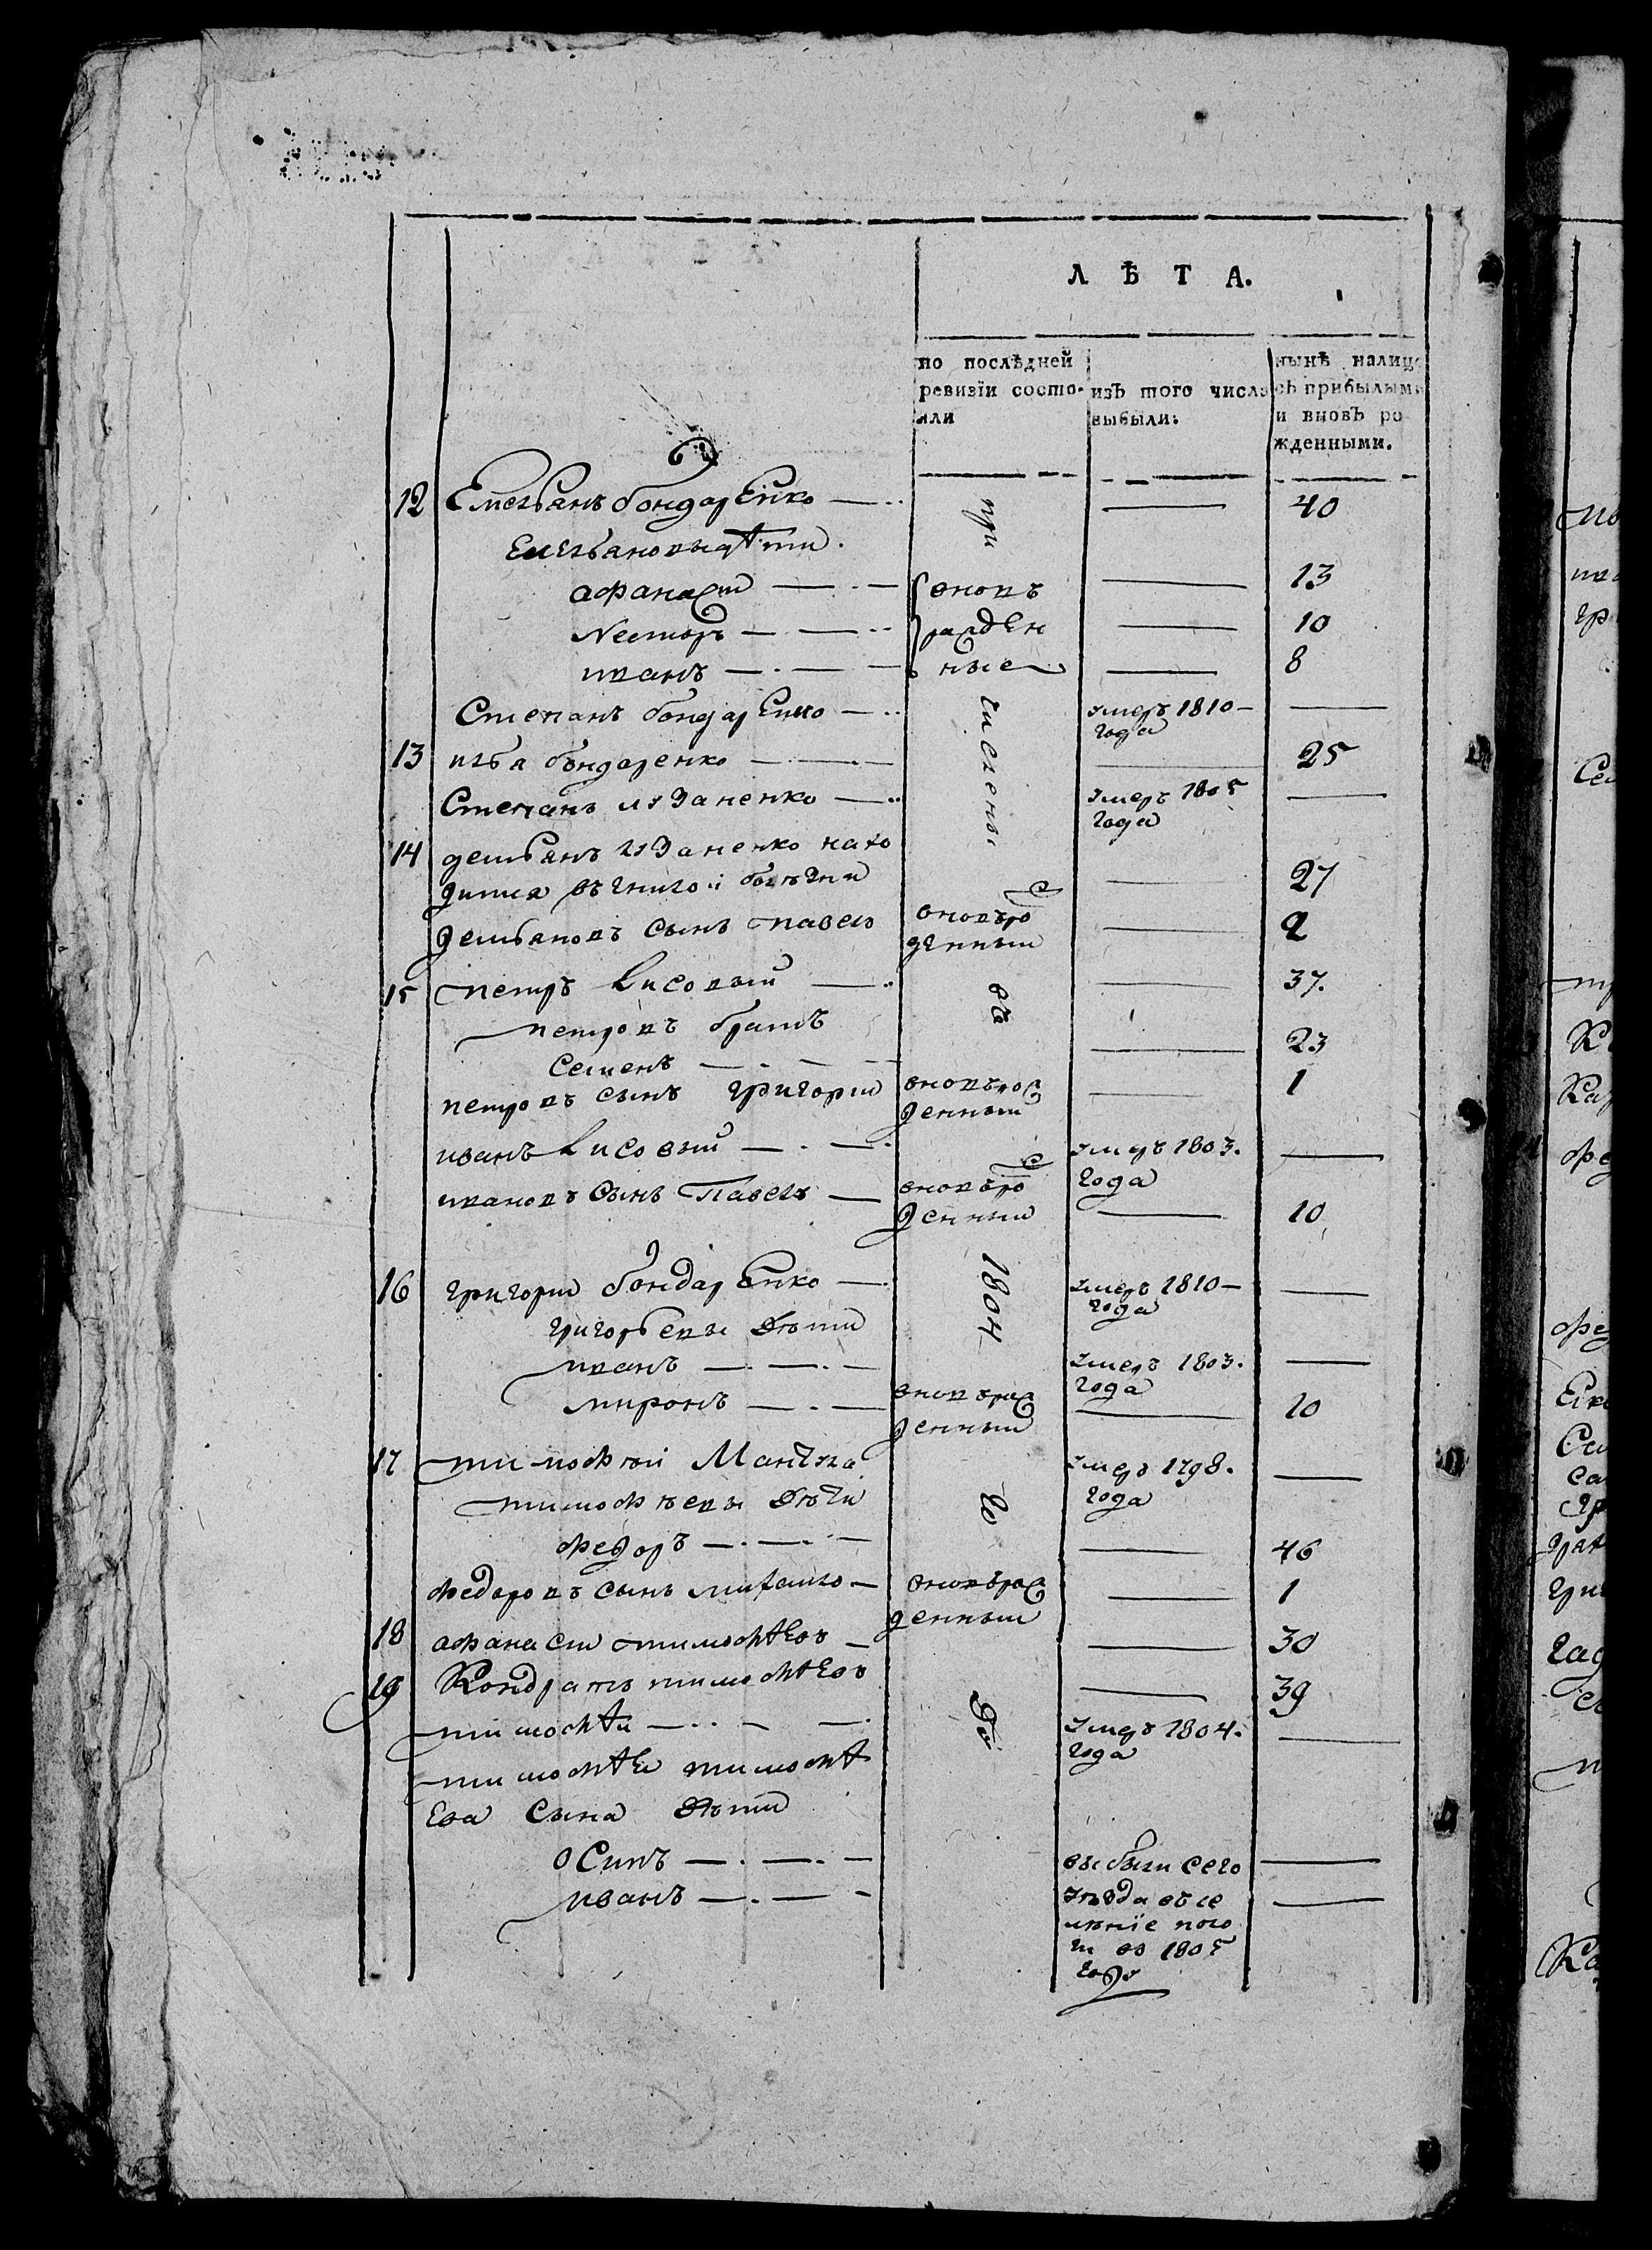 ЛѢТА.
по послѣдней ревизіи состояли
изъ того числа выбыли:
нынѣ налицо съ прибылыми и вновь рожденными.
12 Емельянъ бондаренко — 40
при
Емельяновы дѣти.
афанасии — — { вновъ — 13
Несторъ — — рожден — 10
иванъ — — ные — 8
численъ
Степанъ бондаренко — умеръ 1810 — года —
13 илья бондаренко — — 25
Степанъ — умеръ 1805 года —
14 демьянъ нахо
дится въ болѣзни — 27
демьяновъ сынъ павелъ вновъ рож
денныи — 2
въ
15 петръ Лисовыи — — 37.
петровъ братъ
семенъ — — — 23
петровъ сынъ григории вновъ рож
денныи — 1
иванъ Лисовыи — — умеръ 1803. года —
ивановъ сынъ Павелъ — вновъ рож
денныи — 10
1804
16 григории бондаренко — умеръ 1810 — года —
григорьевы дѣти
иванъ — — умеръ 1803. года —
миронъ — — вновъ рож
денныи — 10
17 тимофѣй умеръ 1798. года —
го
тимофѣевы дѣти
федоръ — — — 46
федоровъ сынъ михаило — вновъ рож
денныи — 1
18 афанасии тимофѣевъ — — 30
19 Кондратъ тимофѣевъ — 39
тимофѣи — — умеръ 1804. года —
тимофѣя тимофѣ
ева сына дѣти
осипъ — — выбыли сего —
иванъ — — уѣзда въ се
леніе
въ 1805
году